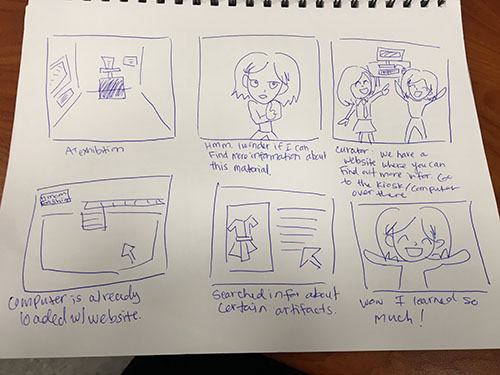 At exhibition
Hmm. I wonder if I can
Find more information about
this material.
Curator: We have a
website where you can
Find out more infor. Go
to the kiosk/computer
over there
Computer is already
loaded w/ website.
Searched info about
certain artifacts.
Wow I learned so
much!